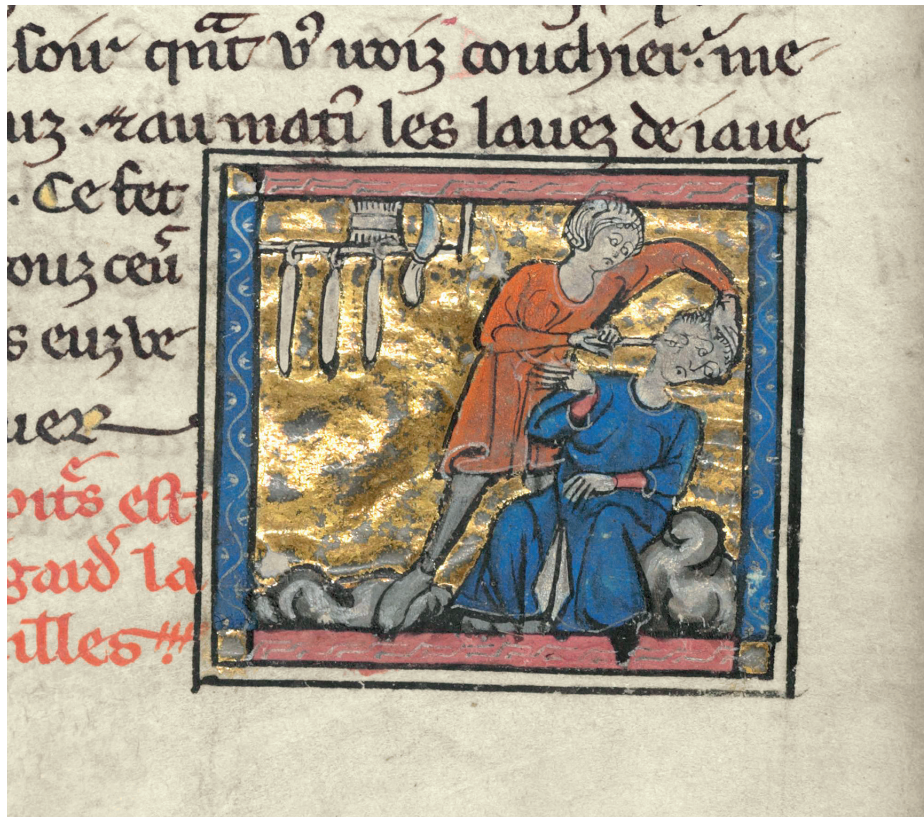 soir qãt vͬ uoiz couchier. me
uz. ⁊ au matĩ les lauez de iaue
. Ce fet
touz ceũ
s euz be
uer
oitͬs est
gard la
illes